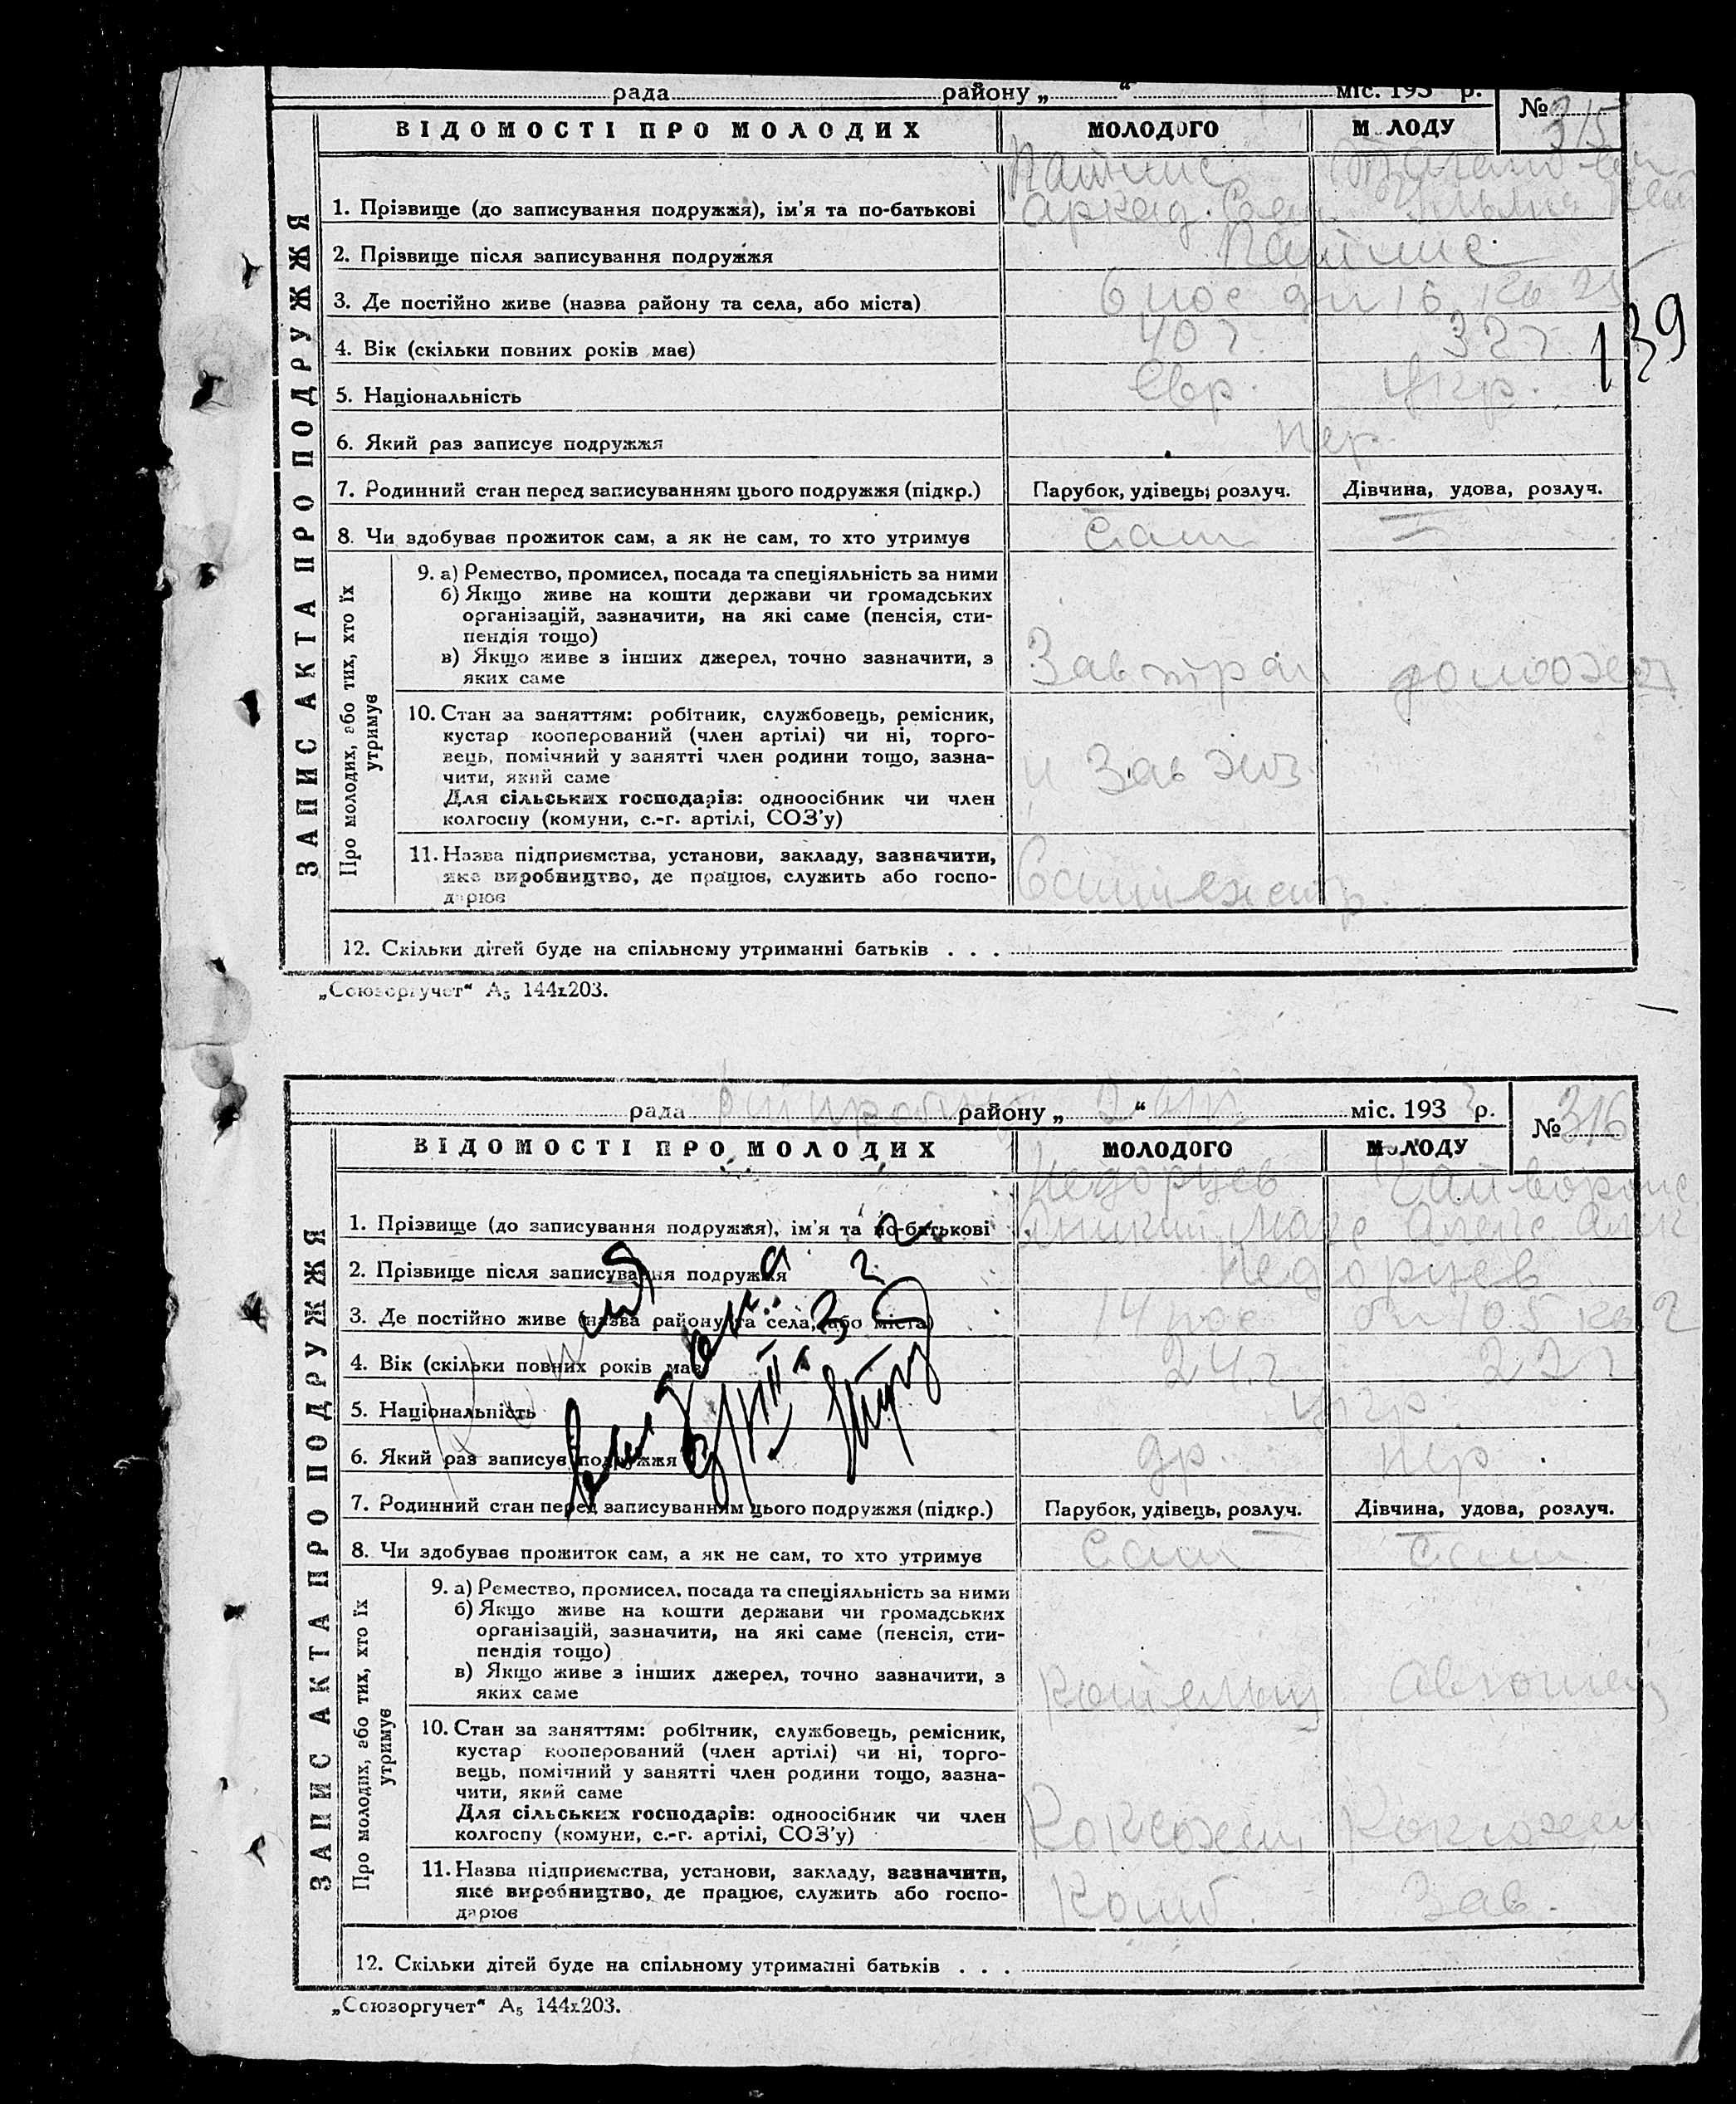 рада району „ “ міс. 193 р.
№ 315
ВІДОМОСТІ ПРО МОЛОДИХ МОЛОДОГО М ЛОДУ
1. Прізвище (до записування подружжя), ім'я та по-батькові Аркад.
2. Прізвище після записування подружжя
3. Де постійно живе (назва району та села, або міста) 6 пос 16 кв 25
139
4. Вік (скільки повних років має) 40 г. 32 г.
5. Національність Євр. Укр.
6. Який раз записує подружжя пер.
7. Родинний стан перед записуванням цього подружжя (підкр.) Парубок, удівець, розлуч. Дівчина, удова, розлуч.
8. Чи здобуває прожиток сам, а як не сам, то хто утримує сам
ЗАПИС АКТА ПРО ПОДРУЖЖЯ
Про молодих, або тих, хто їх утримує
9. а) Ремество, промисел, посада та спеціяльність за ними
б) Якщо живе на кошти держави чи громадських
організацій, зазначити, на які саме (пенсія, сти-
пендія тощо)
в) Якщо живе з інших джерел, точно зазначити, з
яких саме
домохоз
10. Стан за заняттям: робітник, службовець, ремісник,
кустар кооперований (член артілі) чи ні, торго-
вець, помічний у занятті член родини тощо, зазна-
чити, який саме
Для сільських господарів: одноосібник чи член
колгоспу (комуни, с.-г. артілі, СОЗ'у)
11. Назва підприємства, установи, закладу, зазначити,
яке виробництво, де працює, служить або госпо-
дарює
12. Скільки дітей буде на спільному утриманні батьків . . .
„Союзоргучет“ А₅ 144х203.
рада району „ “ міс. 193 р.
№ 316
ВІДОМОСТІ ПРО МОЛОДИХ МОЛОДОГО МОЛОДУ
1. Прізвище (до записування подружжя), ім'я та по-батькові Недорцев
2. Прізвище після записування подружжя Недорцев
3. Де постійно живе (назва району та села, або міста) 14 пос 105 кв 2
4. Вік (скільки повних років має) 24 г. 22 г
5. Національність укр.
6. Який раз записує подружжя др. пер.
7. Родинний стан перед записуванням цього подружжя (підкр.) Парубок, удівець, розлуч. Дівчина, удова, розлуч.
8. Чи здобуває прожиток сам, а як не сам, то хто утримує сам сам
ЗАПИС АКТА ПРО ПОДРУЖЖЯ
Про молодих, або тих, хто їх утримує
9. а) Ремество, промисел, посада та спеціяльність за ними
б) Якщо живе на кошти держави чи громадських
організацій, зазначити, на які саме (пенсія, сти-
пендія тощо)
в) Якщо живе з інших джерел, точно зазначити, з
яких саме
10. Стан за заняттям: робітник, службовець, ремісник,
кустар кооперований (член артілі) чи ні, торго-
вець, помічний у занятті член родини тощо, зазна-
чити, який саме
Для сільських господарів: одноосібник чи член
колгоспу (комуни, с.-г. артілі, СОЗ'у)
Коксохим Коксохим
11. Назва підприємства, установи, закладу, зазначити,
яке виробництво, де працює, служить або госпо-
дарює
Комб. Зав.
12. Скільки дітей буде на спільному утриманні батьків . . .
„Союзоргучет“ А₅ 144х203.